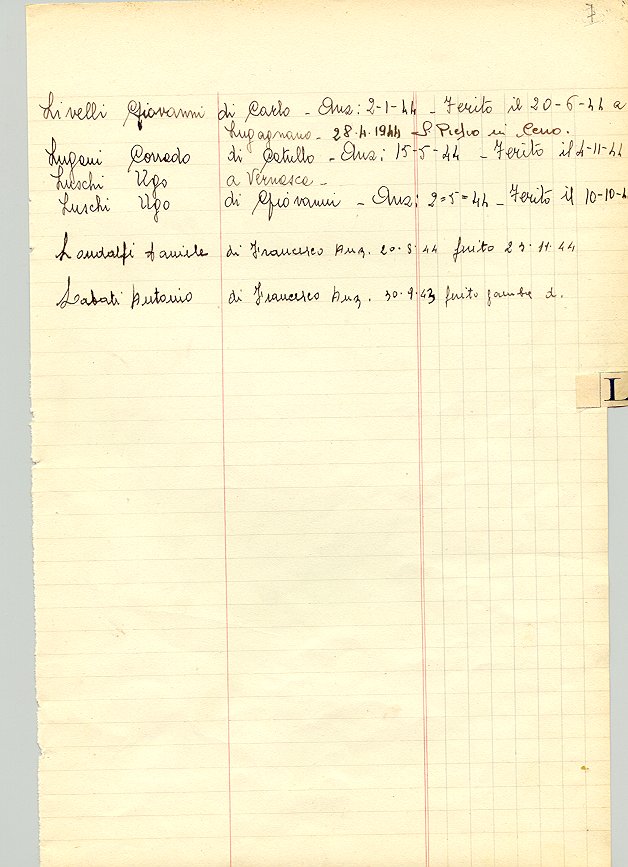 7
Livelli Giovanni di Carlo - Anz: 2-1-44 - Ferito il 20-6-44 a
Lugagnano - 28.4.1944 S. Pietro in Ceno.
Lugani Corrado di Catullo - Anz: 15-5-44 - Ferito il 4-11-44
Luschi Ugo a Vernasca -
Luschi Ugo di Giovanni - Anz: 2=5=44 - Ferito il 10-10-4
Landolfi Daniele di Francesco Anz. 20.5.44 ferito 23.11.44
Labati Antonio di Francesco Anz. 30.9.43 ferito gamba d.
L